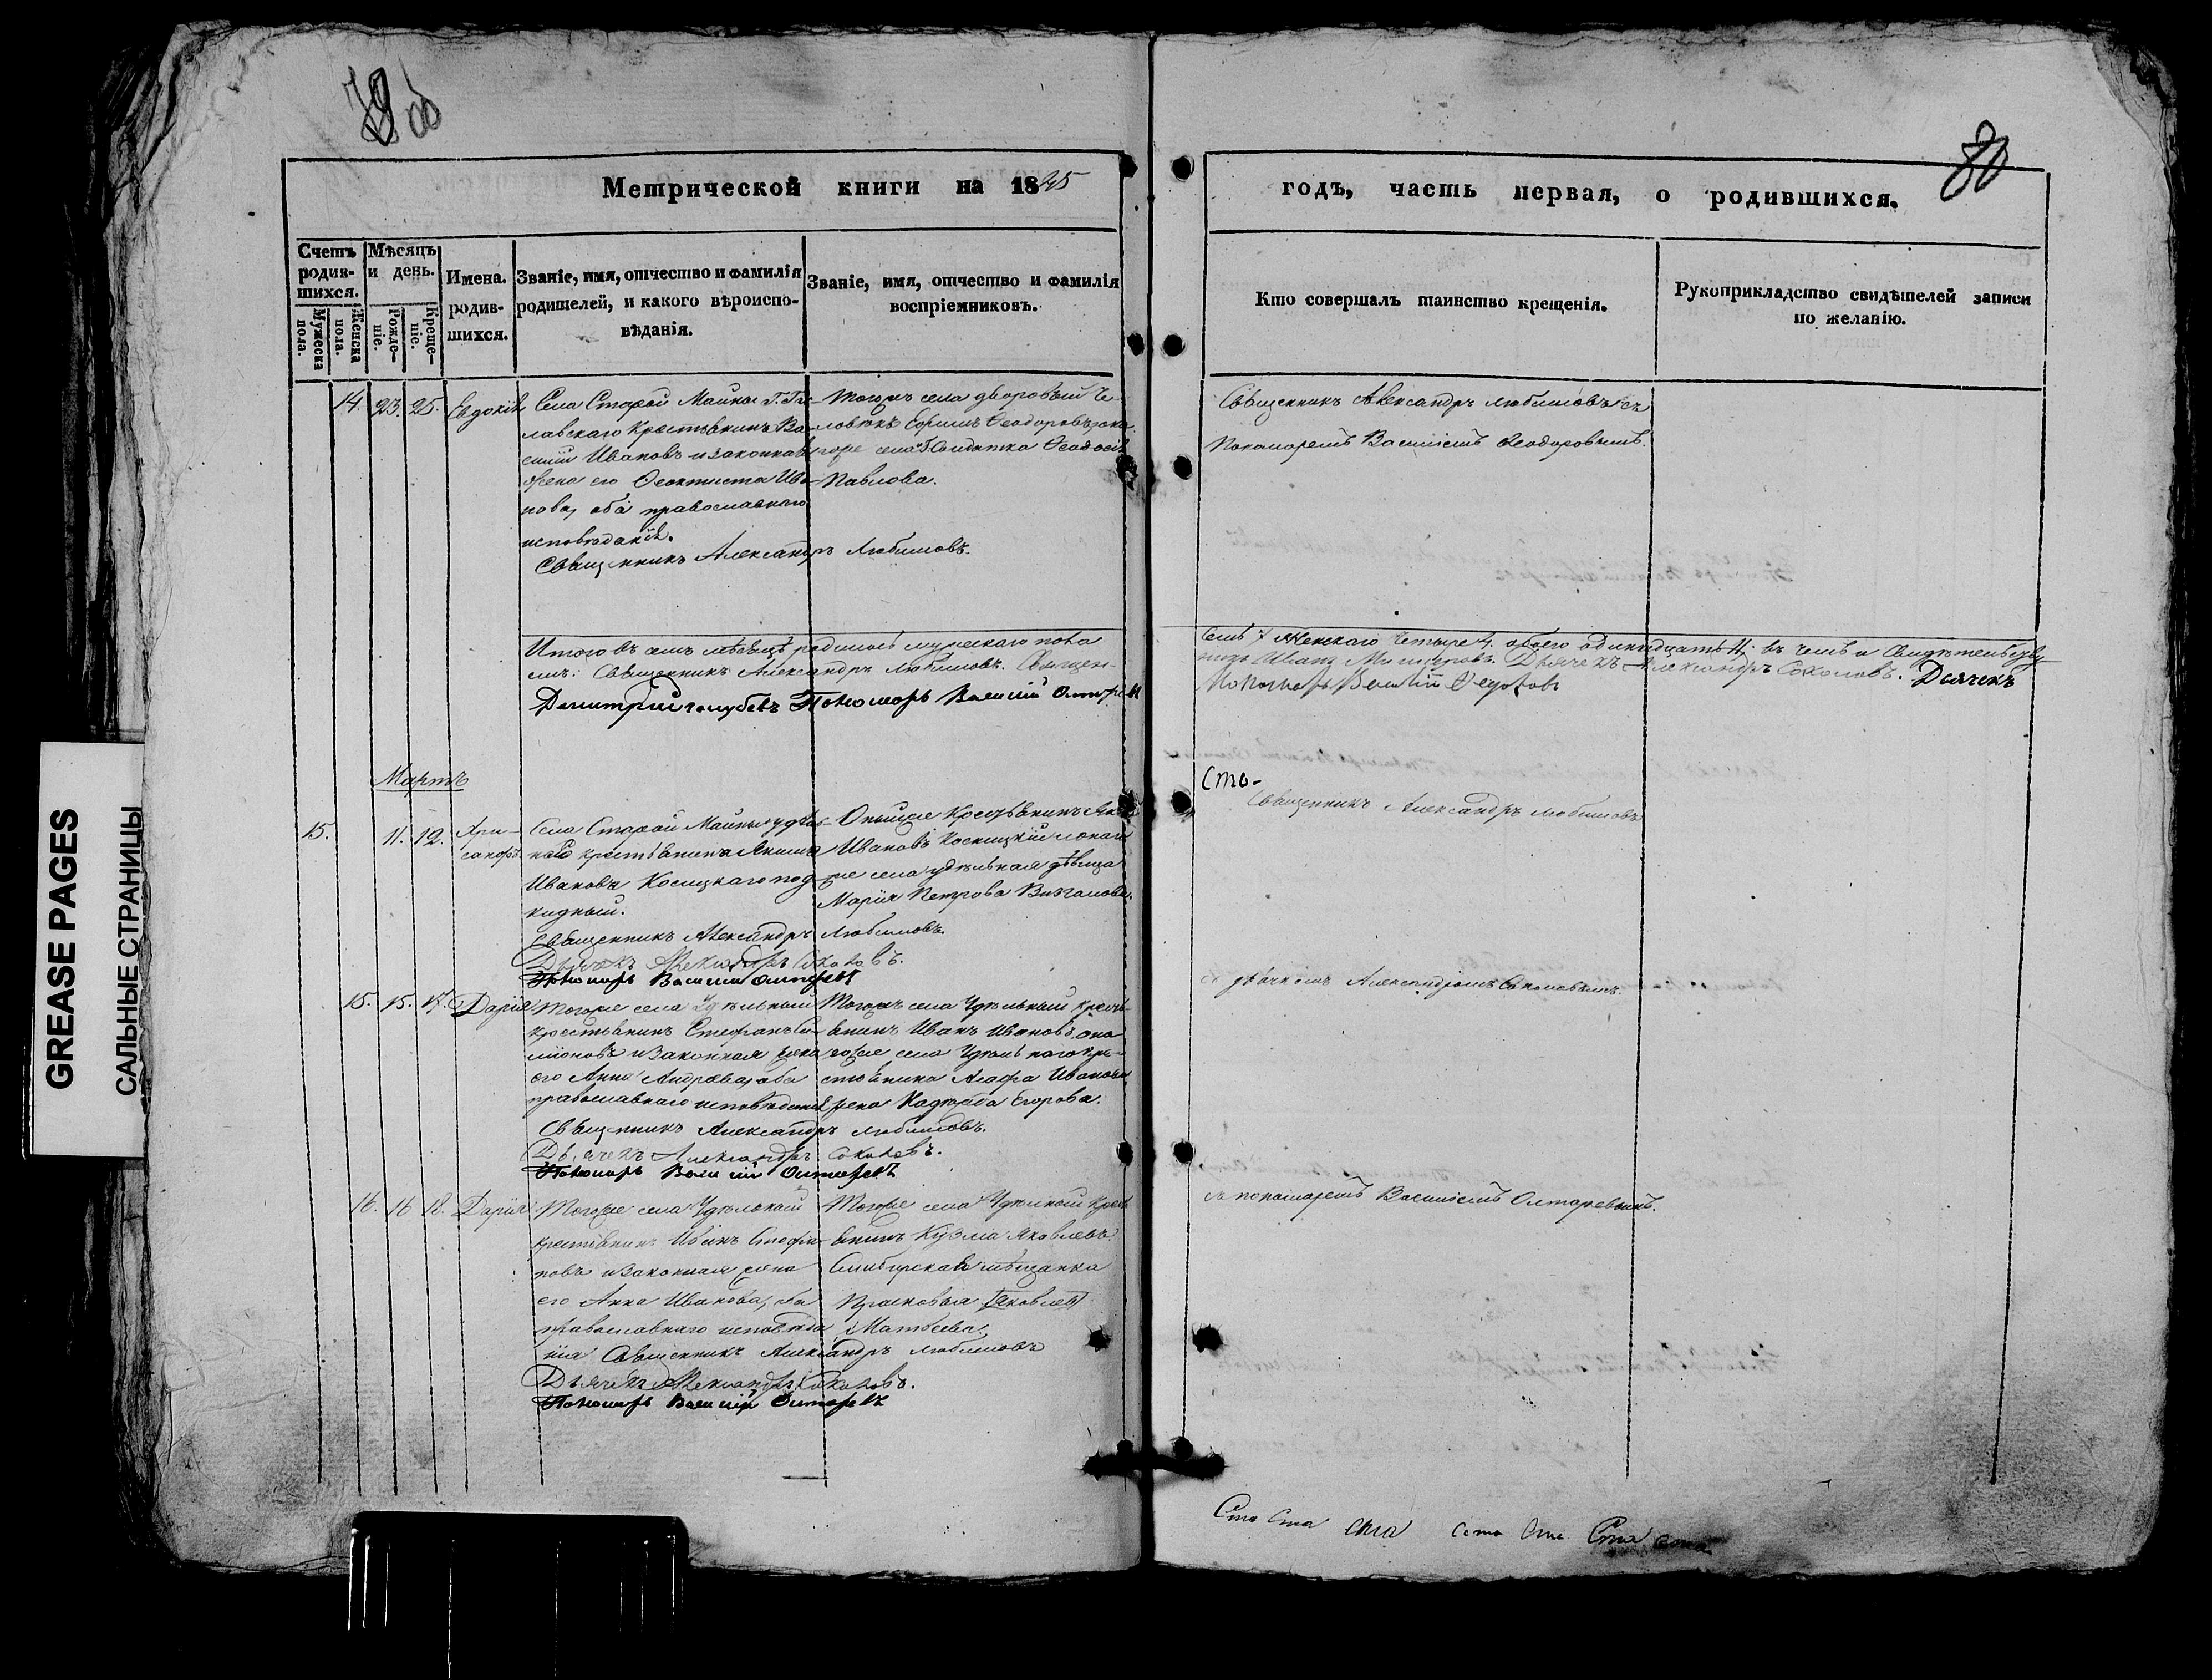 79 об
80
Метрической книги на 1845
годъ, часть первая, о родившихся.
Счетъ родив-
шихся.
Мужеска пола.
Женска пола.
Мѣсяцъ и день.
Рожде-
ніе.
Креще-
ніе.
Имена родив-
шихся.
Званіе, имя, отчество и фамилія
родителей, и какого вѣроиспо-
вѣданія.
Званіе, имя, отчество и фамилія
воспріемниковъ.
Кто совершалъ таинство крещенія.
Рукоприкладство свидѣтелей записи
по желанію.
14. 23. 25. Евдокія
Села Старой Майны Г.
крестьянинъ Ва-
силій Ивановъ и законная
жена его Ѳеоктиста Ива-
нова, оба православнаго
исповѣданія.
Священникъ Александръ Любимовъ.
тогожъ села дворовый че-
ловѣкъ Ефимъ Ѳеодоровъ
села Солдатка Ѳеодосія
Павлова.
Священникъ Александръ Любимовъ съ
Пономаремъ Василіемъ Ѳеодоровымъ.
Итого въ семъ мѣсяцѣ родилось мужескаго пола
семь 7 Женскаго четыре 4. обоего одинадцать 11. въ чемъ и
Священникъ Александръ Любимовъ. Священ-
никъ Иванъ Дьячекъ Александръ Соколовъ. Дьячекъ
Димитрій Голубевъ Пономарь Василій
Пономарь Василій Ѳедоровъ
Мартъ
Сто-
15. 11. 12. Хри-
санфъ
Села Старой Майны удѣль-
наго крестьянина Якима
Иванова Косицкаго под-
кидный.
Священникъ Александръ Любимовъ.
Дьячекъ Александръ Соколовъ.
Пономарь Василій Олтаревъ
крестьянинъ
Ивановъ Косицкій
села удѣльная дѣвица
Марія Петрова
Священникъ Александръ Любимовъ
15. 15. 17. Дарія
Тогоже села Удѣльный
крестьянинъ Стефанъ
и законная жена
его Анна Андреева, оба
православнаго исповѣданія
Священникъ Александръ Любимовъ.
Дьячекъ Александръ Соколовъ.
Пономарь Василій Олтаревъ
Тогожъ села Удѣльный кресть-
янинъ Иванъ Ивановъ
села Удѣльнаго кре-
стьянина Иванова
жена Надежда Егорова.
съ дьячкомъ Александромъ Соколовымъ.
16. 16 18. Дарія
Тогоже села Удѣльный
крестьянинъ Иванъ Стефа-
новъ и законная жена
его Анна Иванова, оба
православнаго исповѣда
нія Священникъ Александръ Любимовъ
Дьячекъ Александръ Соколовъ.
Пономарь Василій Олтаревъ
Тогоже села Удѣльный кресть
янинъ Кузма Яковлевъ
Симбирская мѣщанка
Прасковья Яковлева
Матвеева.
съ пономаремъ Василіемъ Олтаревымъ.
Ста Ста Ста Ста Ста Ста
GREASE PAGES
САЛЬНЫЕ СТРАНИЦЫ